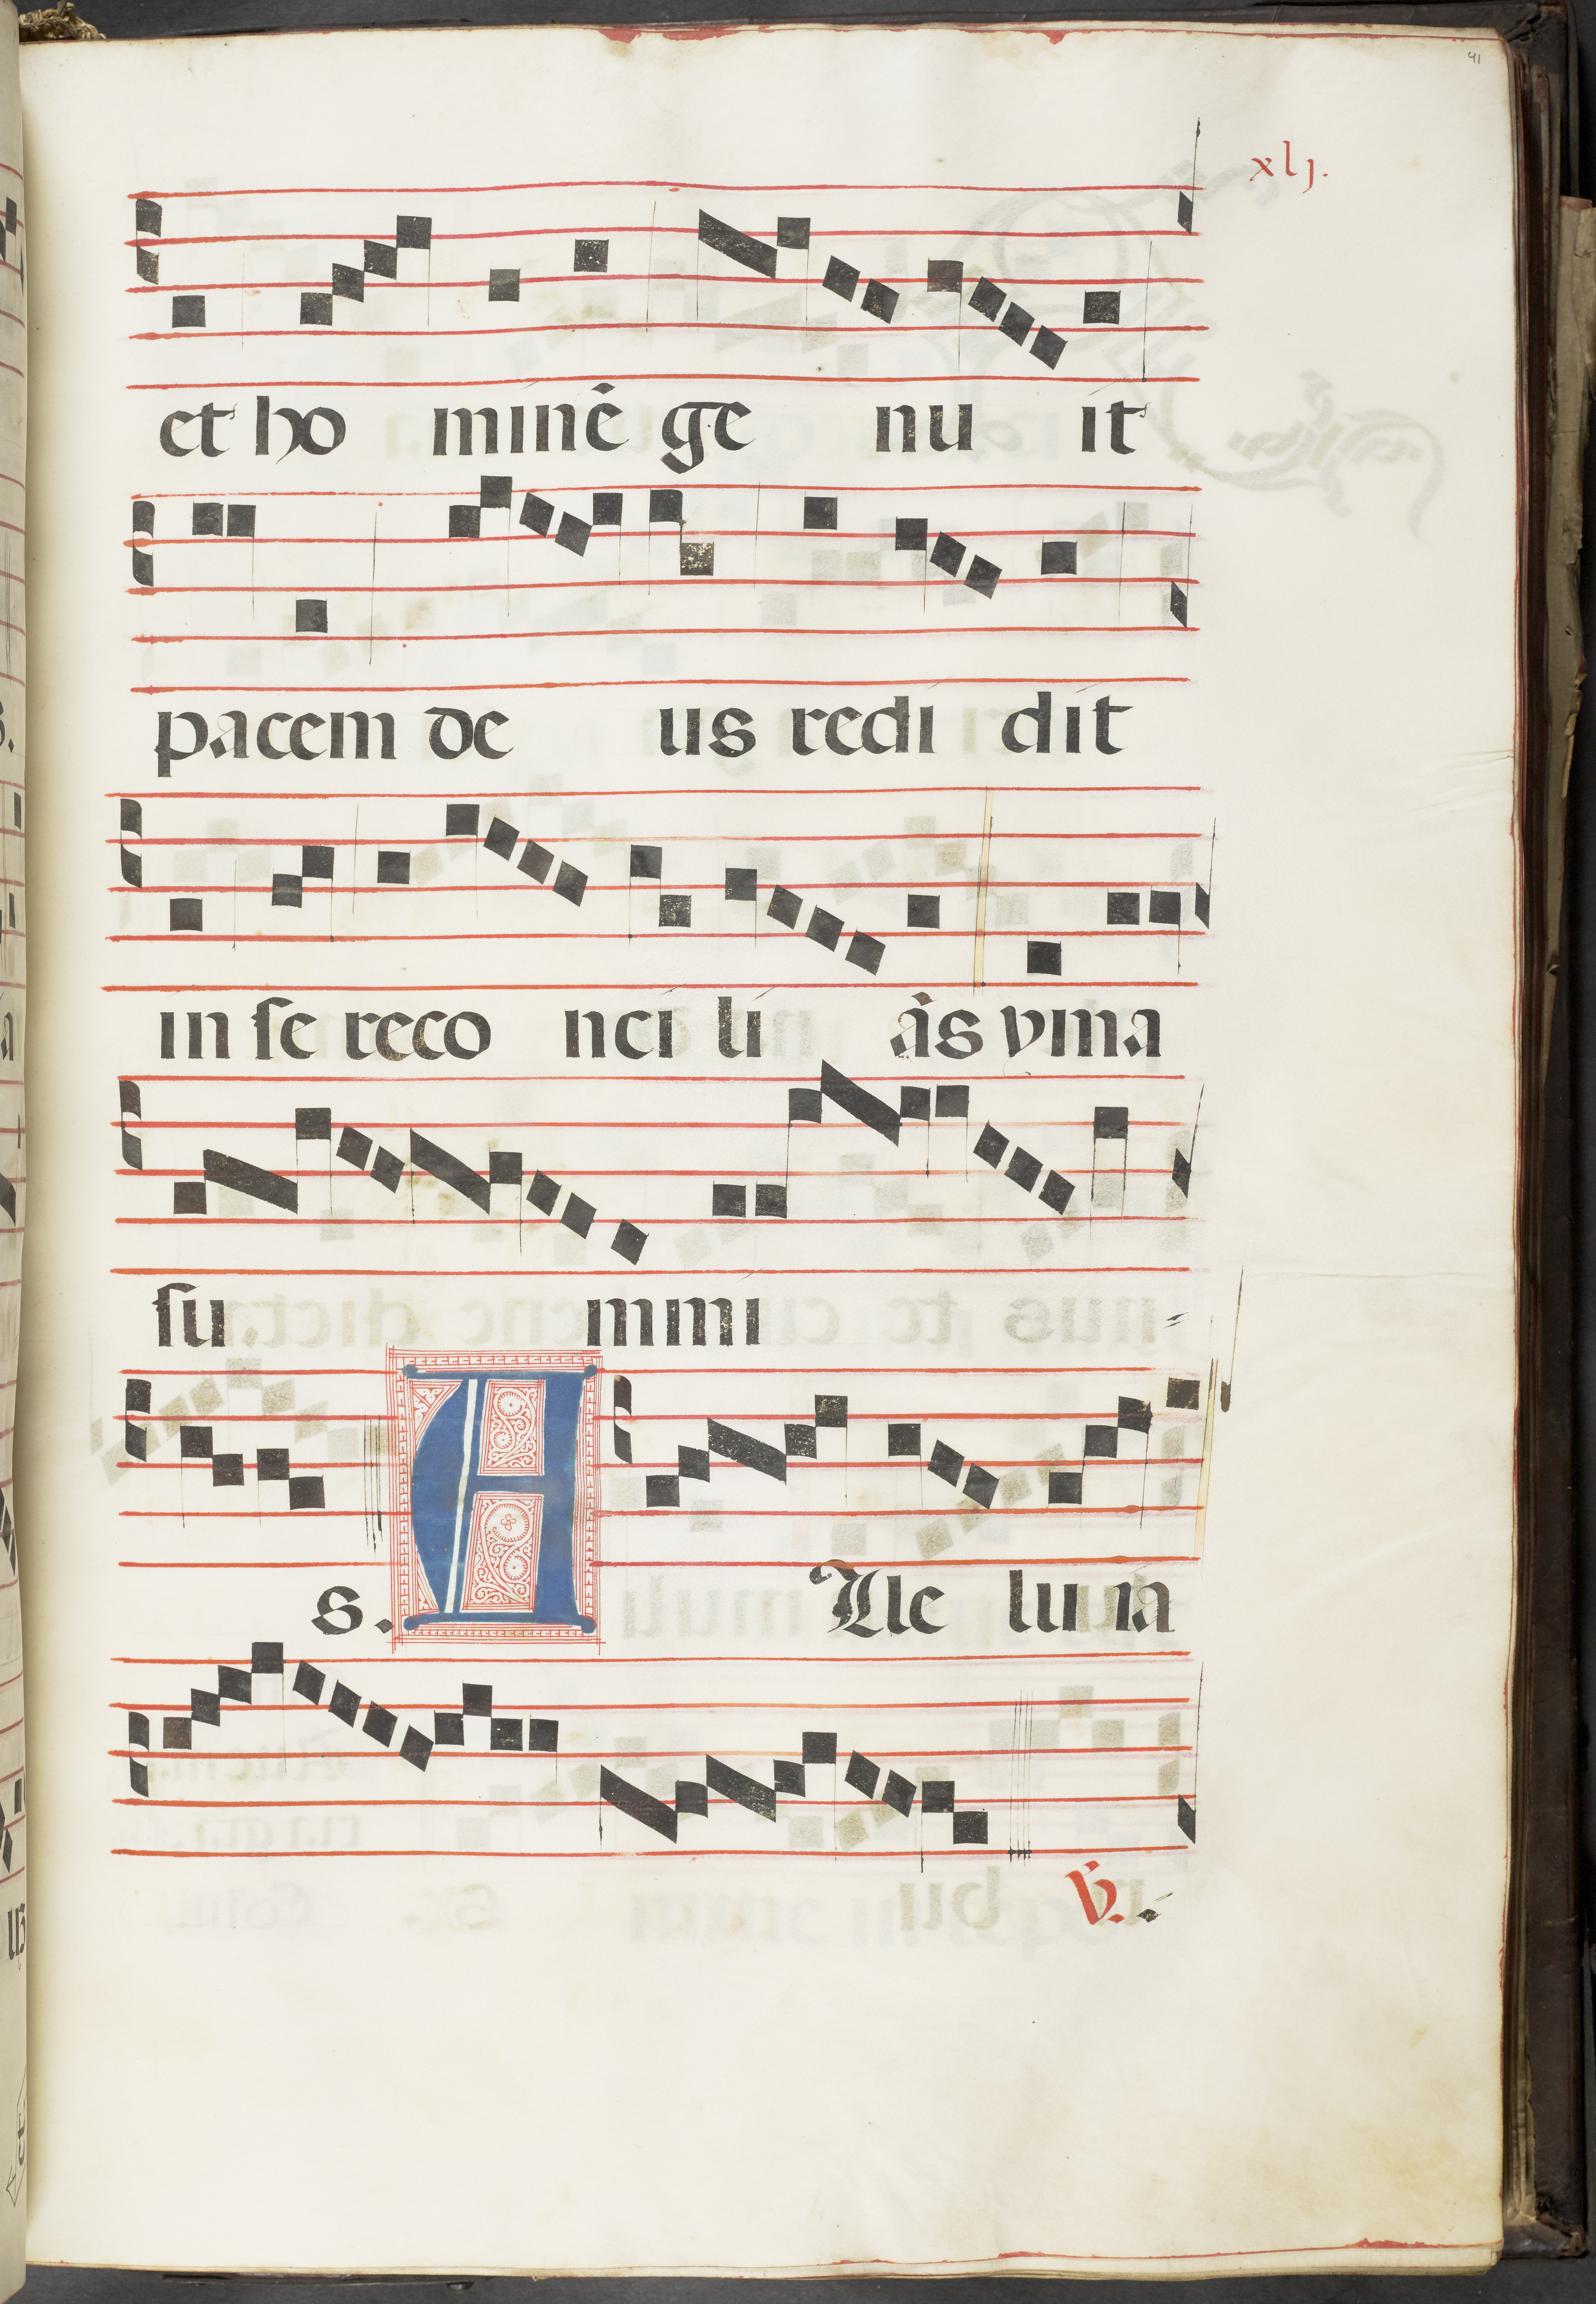 41
xlj.
et ho minē ge nu it
pacem de us redi dit
in se reco nci li ās yma
su mmi
s. Alle lu ia
℣.